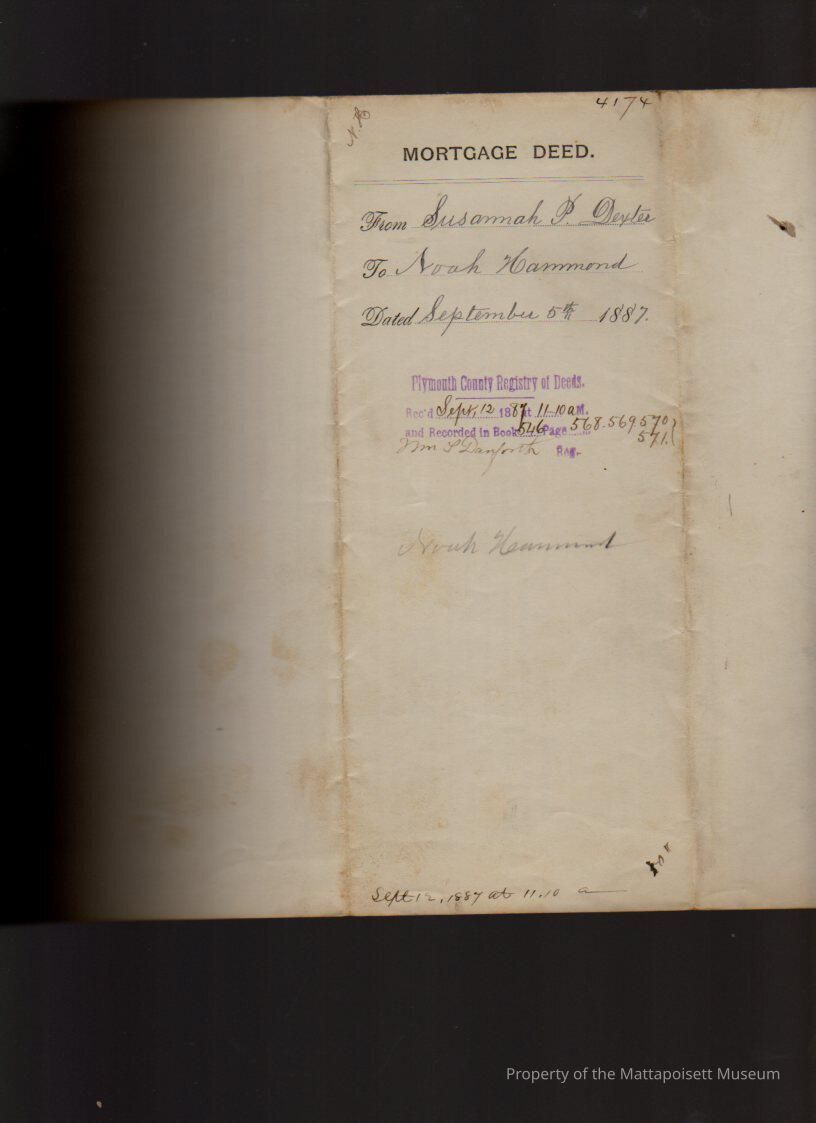 4174
MORTGAGE DEED.
From Susannah P. Dexter
To Noah Hammond
Dated September 5th 1887.
Plymouth County Registry of Deeds.
Rec'd Sept. 12 1887 at 11-10 a M.
and Recorded in Book 546 Page 568-569 570
571.
Wm S Danforth Reg.
Noah Hammond
Sept 12, 1887 at 11.10 a
Property of the Mattapoisett Museum